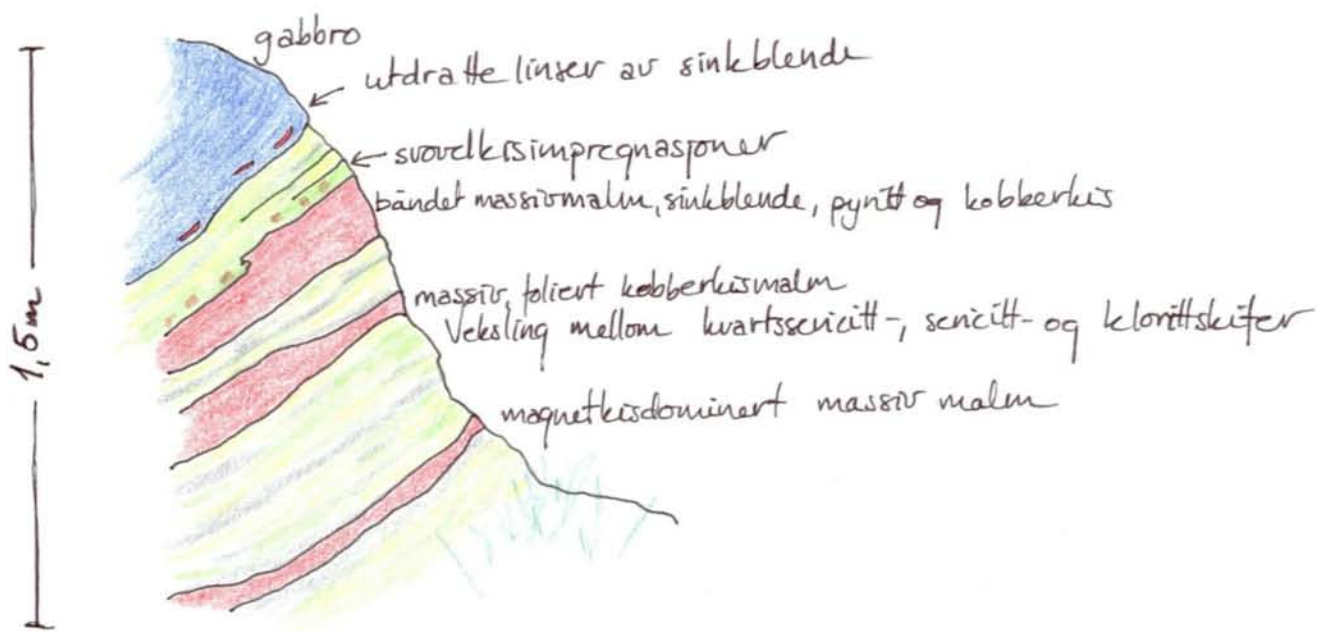 gabbro
utdratte linser av sinkblende
svovelkisimpregnasjoner
båndet massivmalm, sinkblende, pyritt og kobberkis
massiv, foliert kobberkismalm
Veksling mellom kvartssericitt-, sericitt- og klorittskifer
magnetkisdominert massiv malm
1,5m